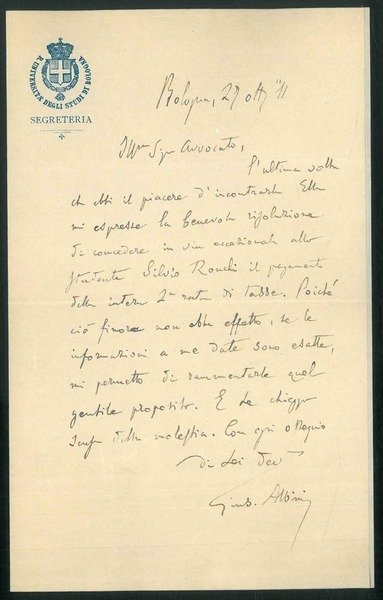 R. UNIVERSITÀ DEGLI STUDI DI BOLOGNA
SEGRETERIA
Bologna, 27 ott. '11
Ill.mo Sign. Avvocato,
l'ultima volta
che ebbi il piacere d'incontrarla Ella
mi espresse la benevola risoluzione
di concedere in via eccezionale allo
studente Silvio Ronchi il pagamento
della intera 2a rata di tasse. Poiché
ciò finora non ebbe effetto, se le
informazioni a me date sono esatte,
mi permetto di rammentarle quel
gentile proposito. E Le chieggo
scusa della molestia. Con ogni ossequio
di Lei dev.
Gius. Albini